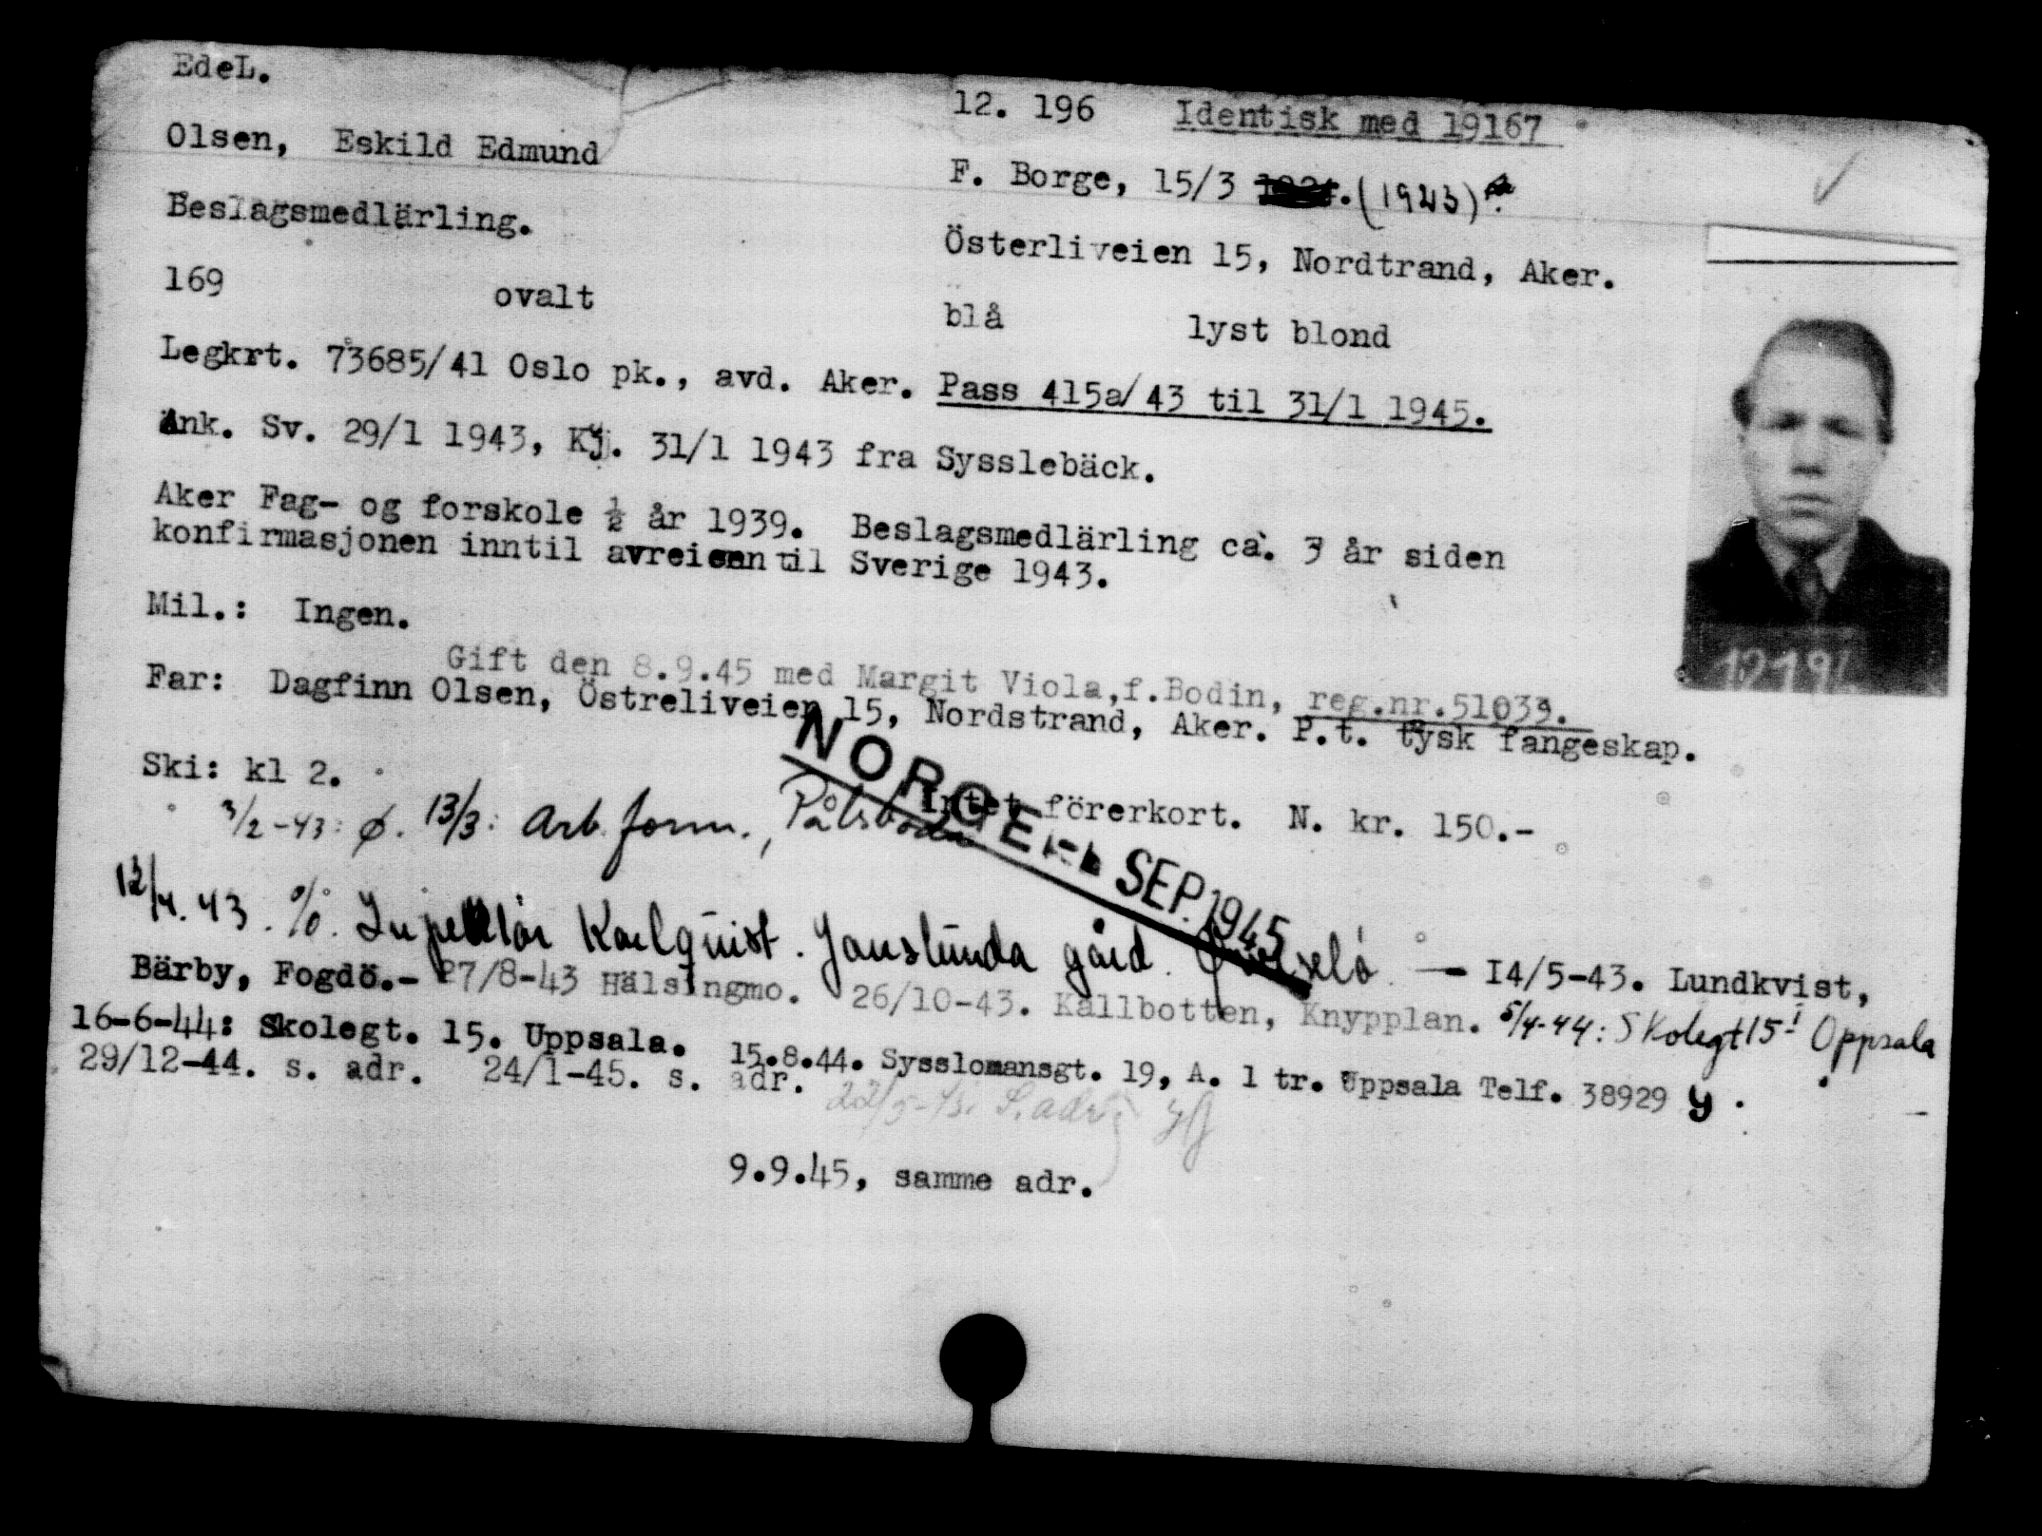 EdeL.
12. 196 Identisk med 19167
Olsen, Eskild Edmund
F. Borge, 15/3 (1923)
Beslagsmedlärling.
Österliveien 15, Nordtrand, Aker.
169 ovalt blå lyst blond
Legkrt. 73685/41 Oslo pk., avd. Aker. Pass 415a/43 til 31/1 1945.
Ank. Sv. 29/1 1943, Kj. 31/1 1943 fra Sysslebäck.
Aker Fag- og forskole ½ år 1939. Beslagsmedlärling ca. 3 år siden
konfirmasjonen inntil avreisen til Sverige 1943.
Mil.: Ingen.
Gift den 8.9.45 med Margit Viola,f.Bodin, reg.nr.51039.
Far: Dagfinn Olsen, Östreliveien 15, Nordstrand, Aker. P.t. tysk fangeskap.
Ski: kl 2. Intet förerkort. N. kr. 150.-
3/2-43: ø. 13/3: Arb. form., Pålsboda
NORGE SEP. 1945
12/4. 43. Karlquist. Janslunda gård. - 14/5-43. Lundkvist,
Bärby, Fogdö.- 27/8-43 Hälsingmo. 26/10-43. Kallbotten, Knypplan. 5/4-44: Skolegt 15 I Uppsala
16-6-44: Skolegt. 15. Uppsala. 15.8.44. Sysslomansgt. 19, A. 1 tr. Uppsala Telf. 38929
29/12-44. s. adr. 24/1-45. s. adr.
S. adr.
9.9.45, samme adr.